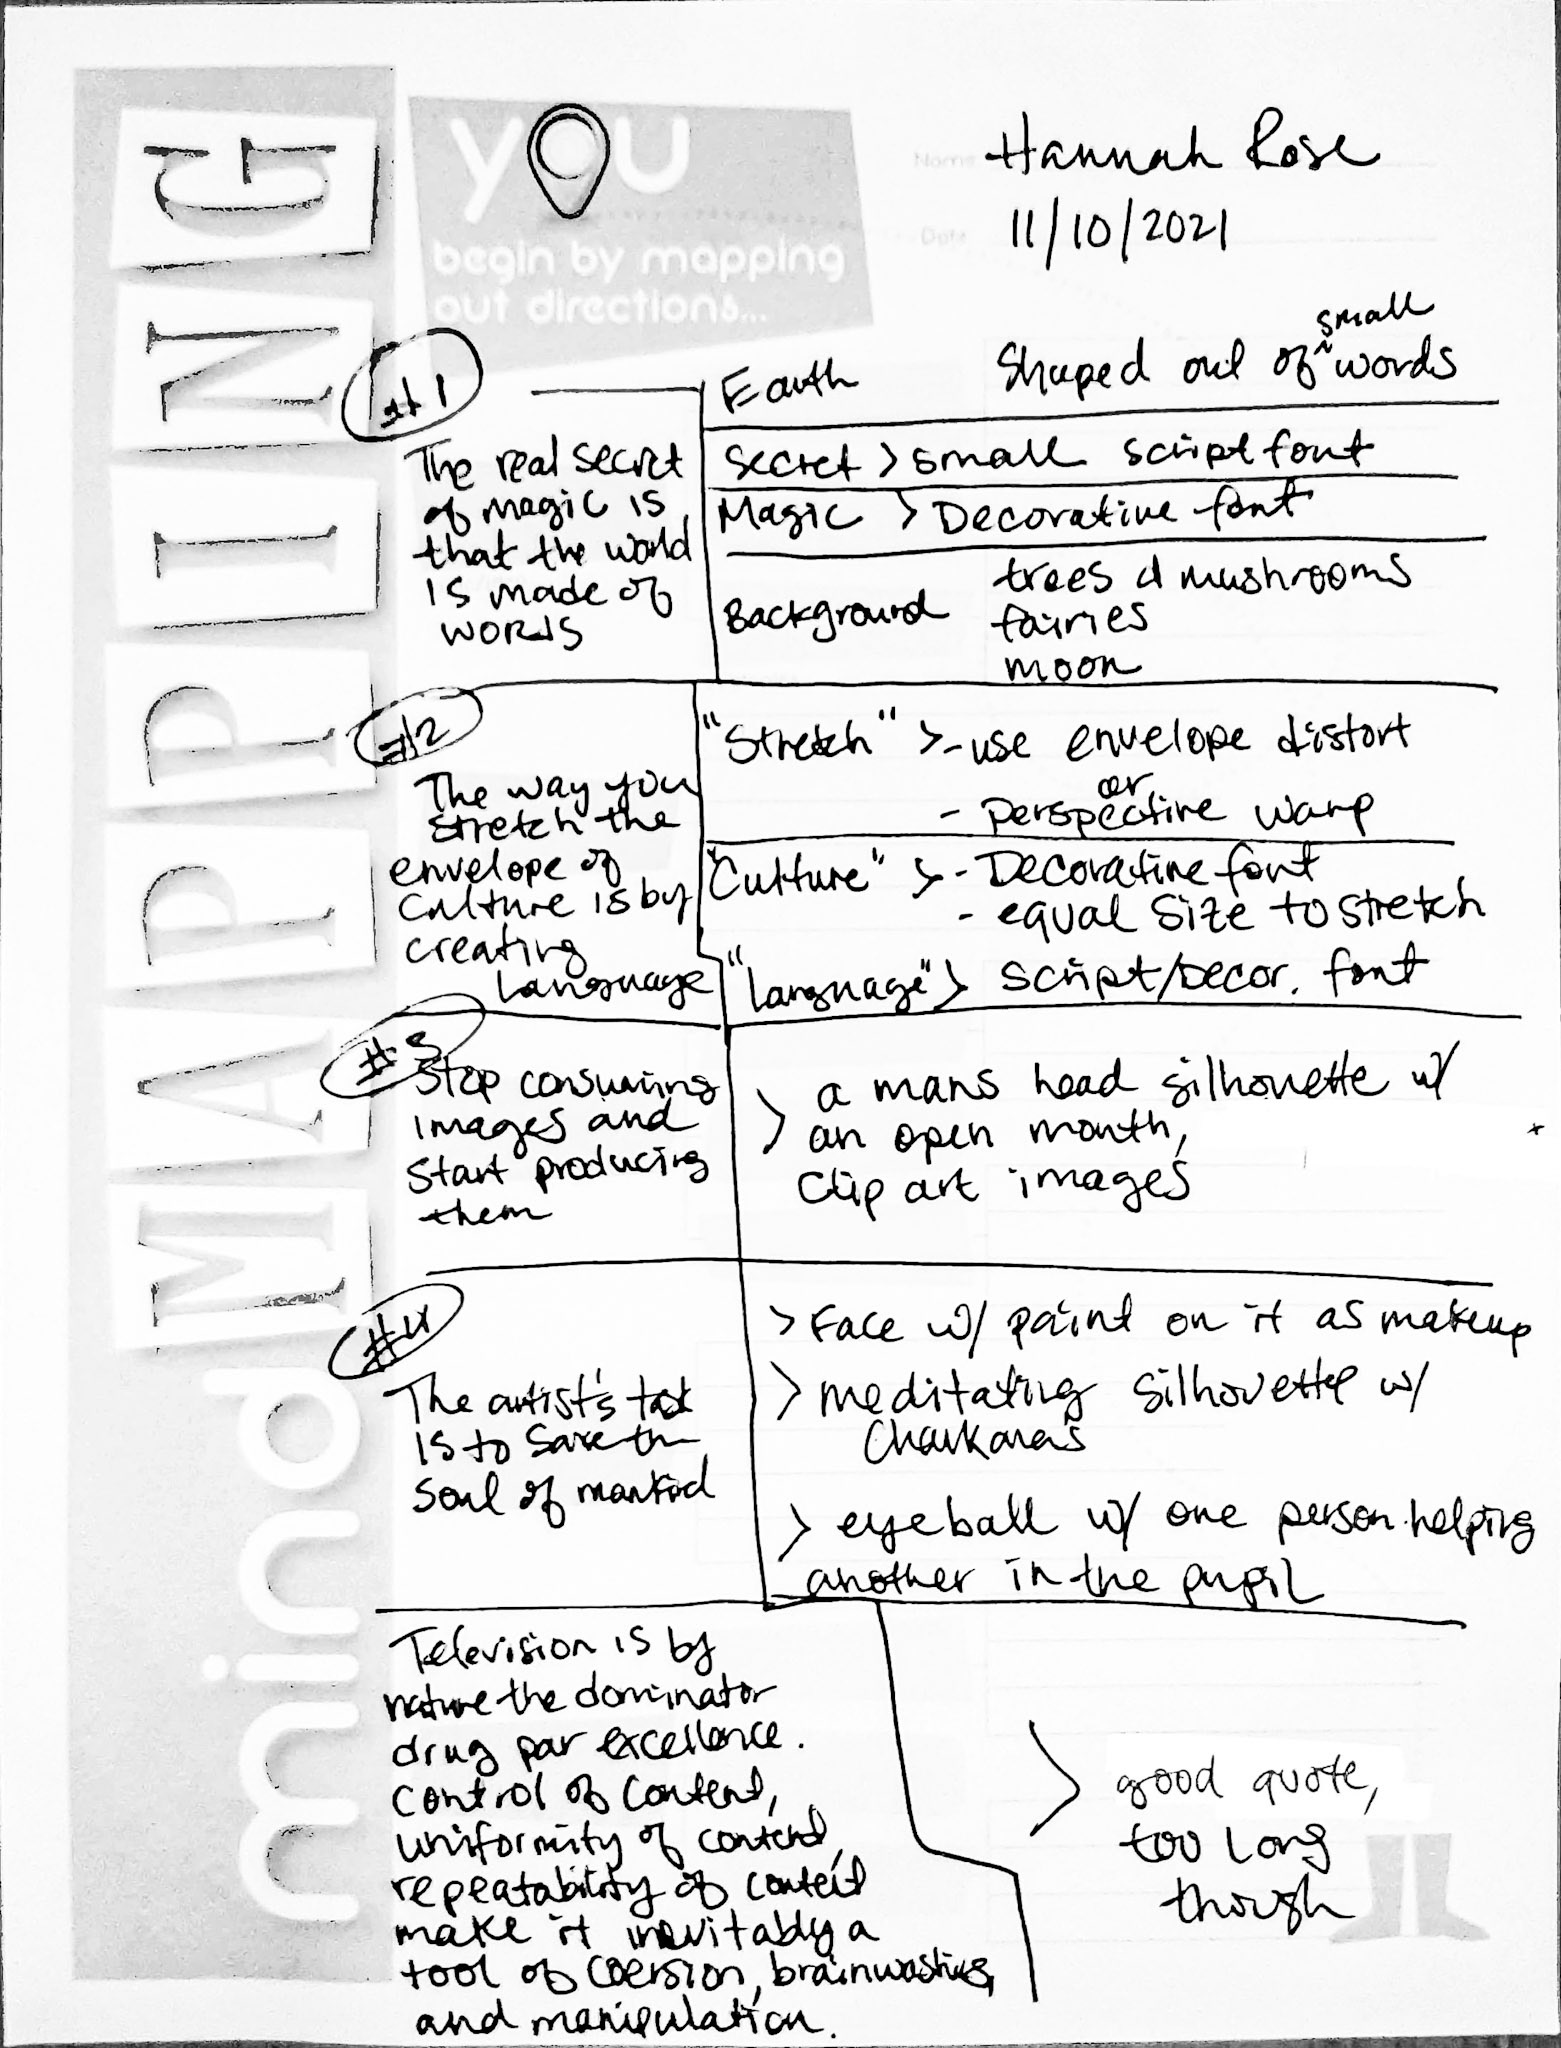 mind MAPPIING
yOU
begin by mapping
out directions...
Name
Hannah Rose
Date
11/10/2021
#1
The real secret
of magic is
that the world
is made of
words
Earth Shaped out of ^ small words
Secret > small script font
Magic > Decorative font
Background trees & mushrooms
fairies
moon
#2
The way you
stretch the
envelope of
culture is by
creating
language
"Stretch" > - use envelope distort
or
- perspective warp
"Culture" > - Decorative font
- equal size to stretch
"language" > script/Decor. font
#3
Stop consuming
images and
start producing
them
> a mans head silhouette w/
an open mouth,
clip art images
#4
The artist's task
is to save the
soul of mankind
> Face w/ paint on it as makeup
> meditating silhouette w/
> eyeball w/ one person helping
another in the pupil
Television is by
nature the dominator
drug par excellence.
Control of content,
uniformity of content,
repeatability of content
make it inevitably a
tool of coersion, brainwashing,
and manipulation.
> good quote,
too long
though